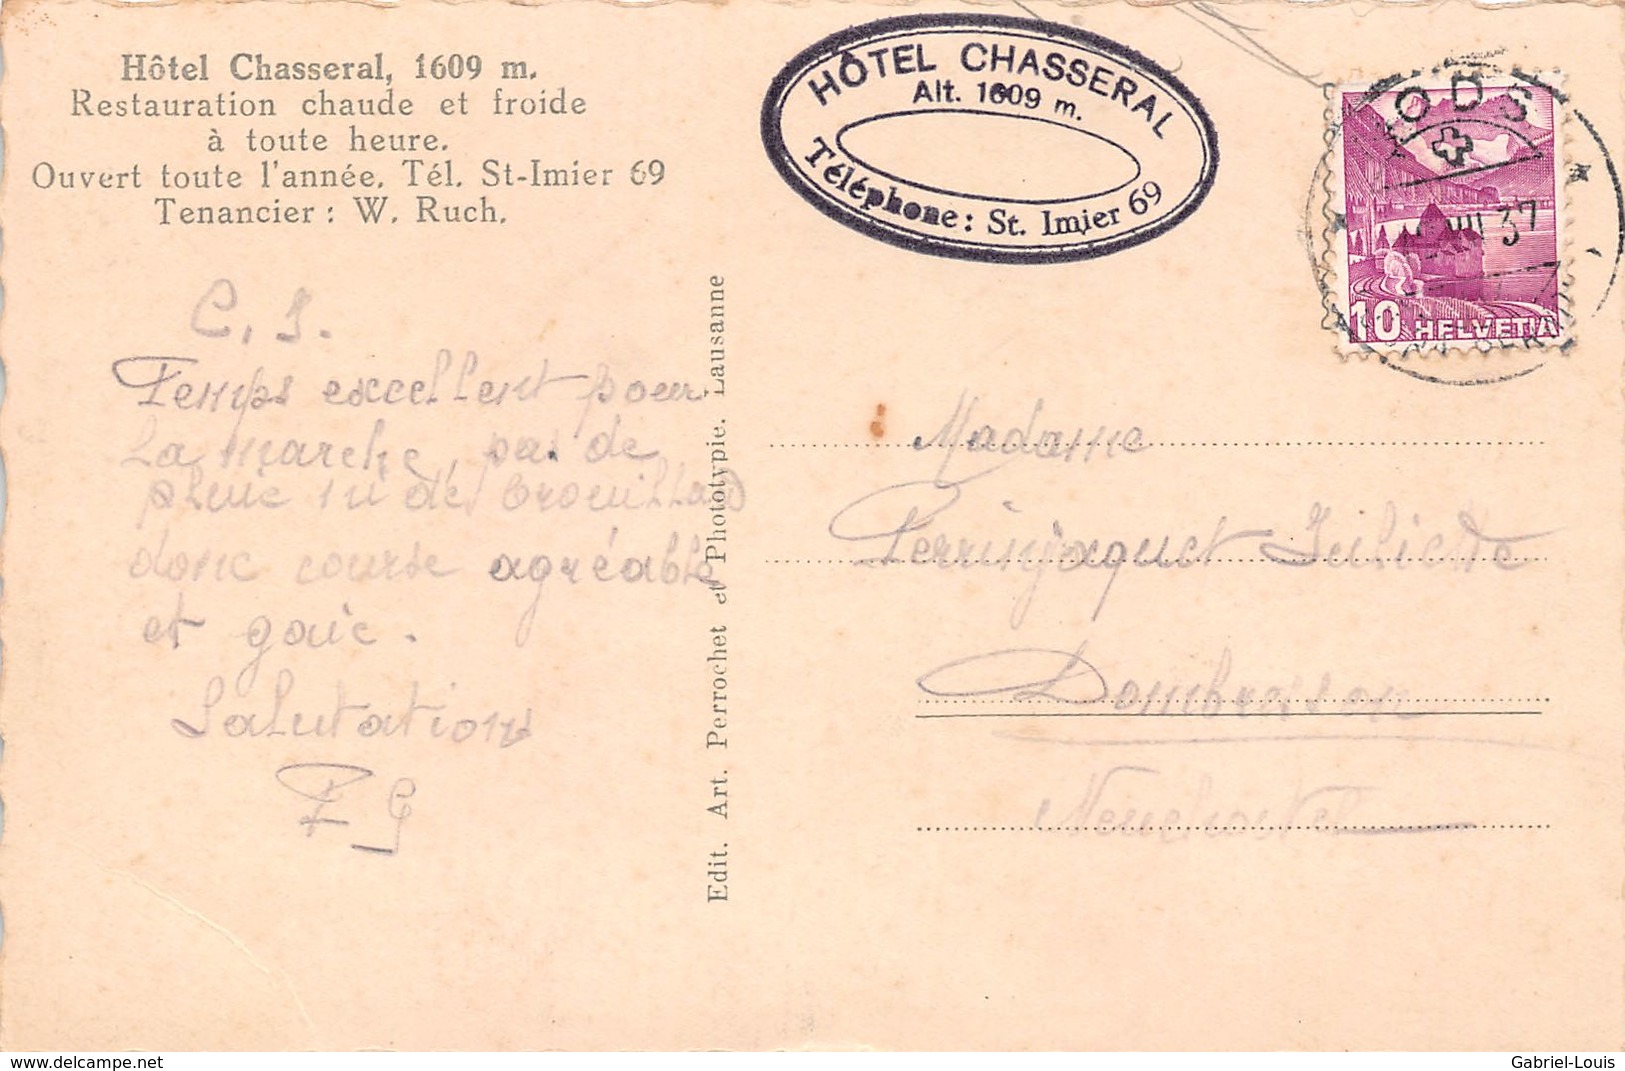 Hôtel Chasseral, 1609 m.
Restauration chaude et froide
à toute heure.
Ouvert toute l'année. Tél. St-Imier 69
Tenancier : W. Ruch.
HÔTEL CHASSERAL
Alt. 1609 m.
Téléphone: St. Imier 69
ODS
VIII 37
10 HELVETIA
C. J.
Temps excellent pour
la marche, pas de
pluie ni de brouillard
donc course agréable
et gaie.
Salutations
Edit. Art. Perrochet et Phototypie. Lausanne
Madame
Perrinjaquet Juliette
Dombresson
Neuchatel
www.delcampe.net
Gabriel-Louis